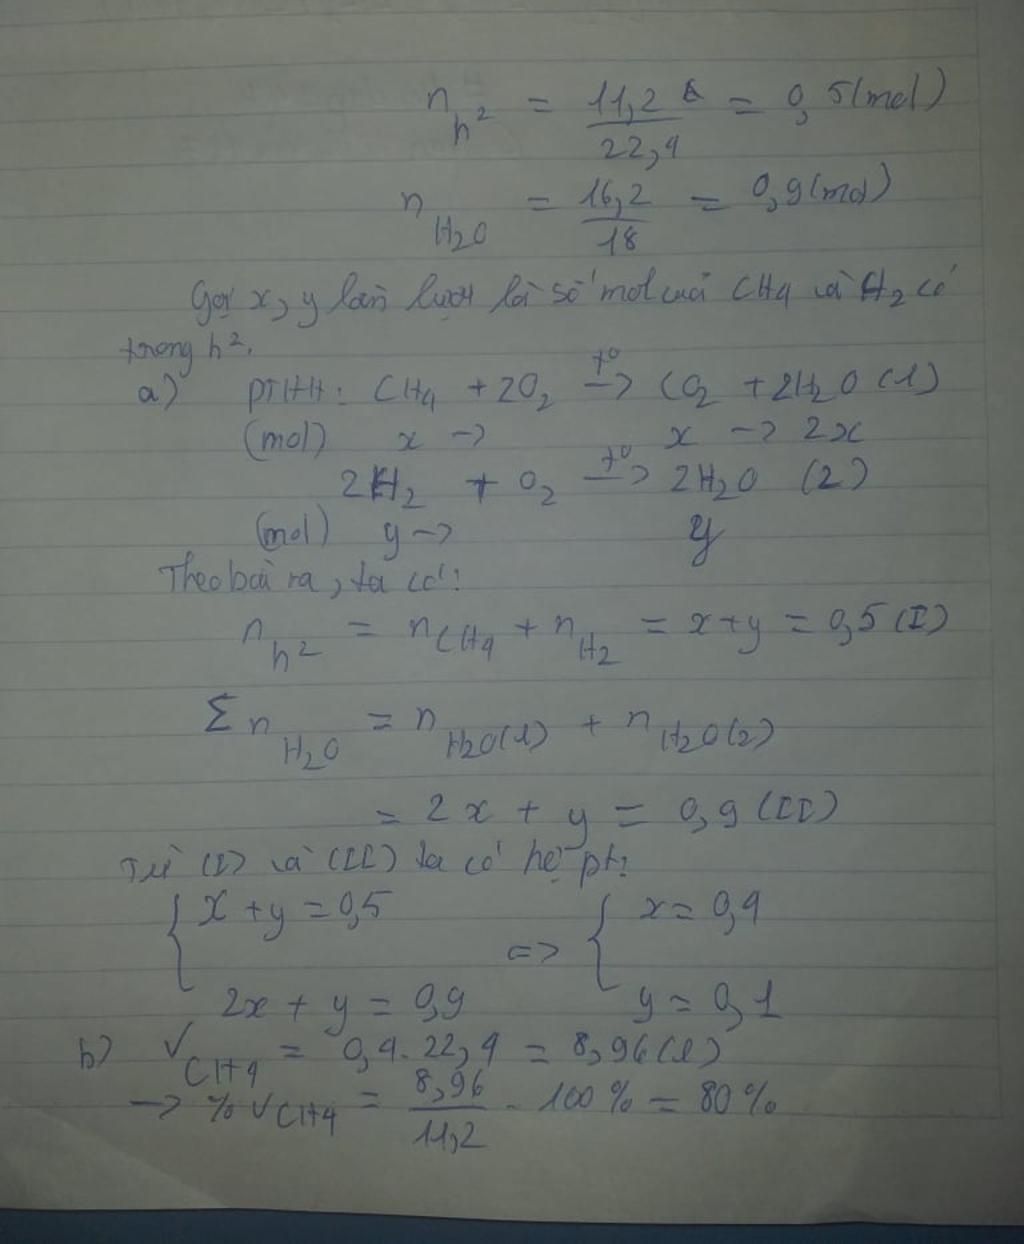 n_h² = 11,2 / 22,4 = 0,5(mol)
n_H₂O = 16,2 / 18 = 0,9(mol)
Gọi x, y lần lượt là số mol của CH₄ và H₂ có
trong h².
a) PTHH: CH₄ + 2O₂ –t°–> CO₂ + 2H₂O (1)
(mol) x -> x -> 2x
2H₂ + O₂ –t°–> 2H₂O (2)
(mol) y -> y
Theo bài ra, ta có:
n_h² = n_CH₄ + n_H₂ = x+y = 0,5 (I)
Σn_H₂O = n_H₂O(1) + n_H₂O(2)
= 2x + y = 0,9 (II)
Từ (I) và (II) ta có hệ pt:
{ x + y = 0,5 <=> { x = 0,4
2x + y = 0,9 y = 0,1
b) V_CH₄ = 0,4 . 22,4 = 8,96(l)
-> %V_CH₄ = 8,96 / 11,2 . 100% = 80%